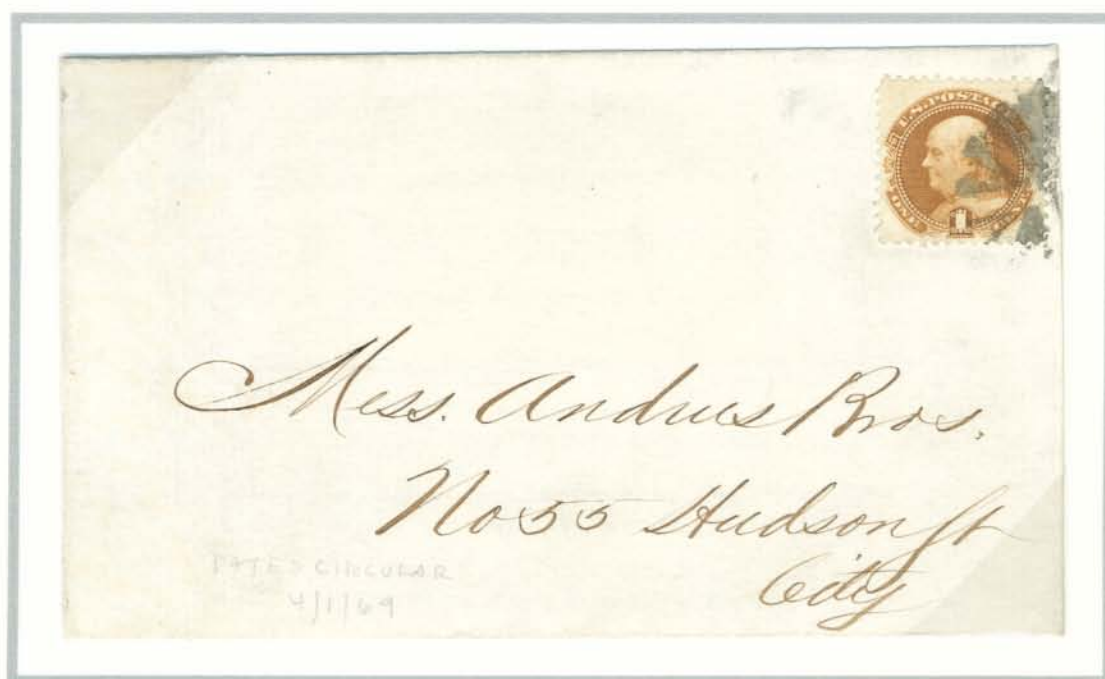 U.S. POSTAGE
ONE CENT
1
Mess. Andrus Bros.
No 55 Hudson St
City
DATED CIRCULAR
4/1/69